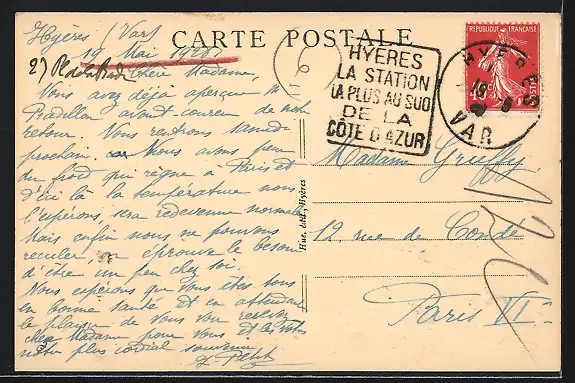 CARTE POSTALE
Hyères (Var)
19 Mai 192
2) Pl de la Chère Madame,
Vous avez déjà aperçu M
Pradillon avant-coureur de notre
retour. Nous rentrons samedi
prochain. Nous avons peur
du froid qui règne à Paris et
d'ici là la température nous
l'espérons, sera redevenue normale
Mais enfin nous ne pouvons
reculer, on éprouve le besoin
d'être un peu chez soi.
Nous espérons que vous êtes tous
en bonne santé et en attendant
le plaisir de vous voir recevez
chère Madame pour vous et les vôtres
notre plus cordial souvenir
J. Petit
6
HYÈRES
LA STATION
LA PLUS AU SUD
DE LA
CÔTE D'AZUR
RÉPUBLIQUE FRANÇAISE
POSTES
HYERES
VAR
Madame Gruffy
12 rue de Condé
Paris VI
Hue, édit., Hyères